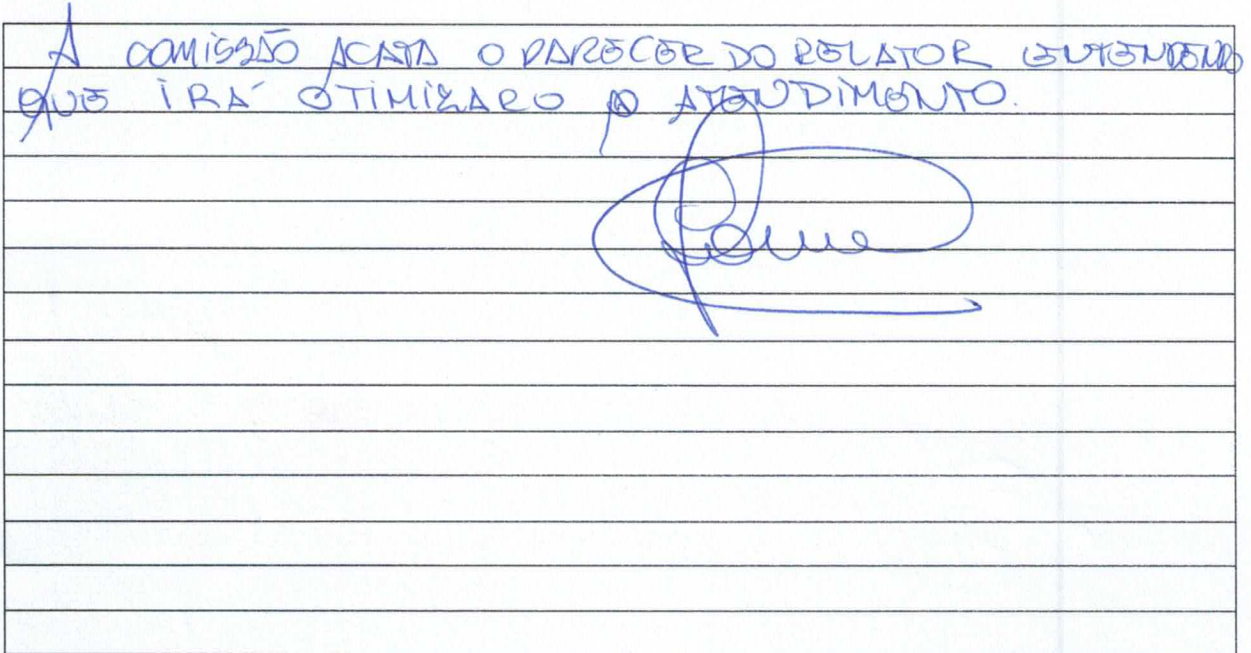 A COMISSÃO ACATA O PARECER DO RELATOR ENTENDENDO
QUE IRÁ OTIMIZAR O O ATENDIMENTO.